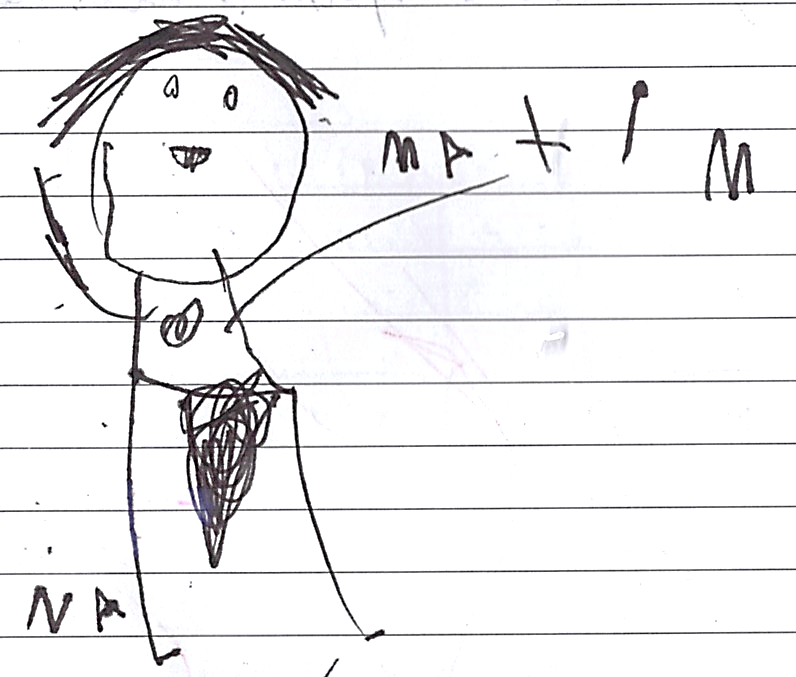 MA + i M
NA